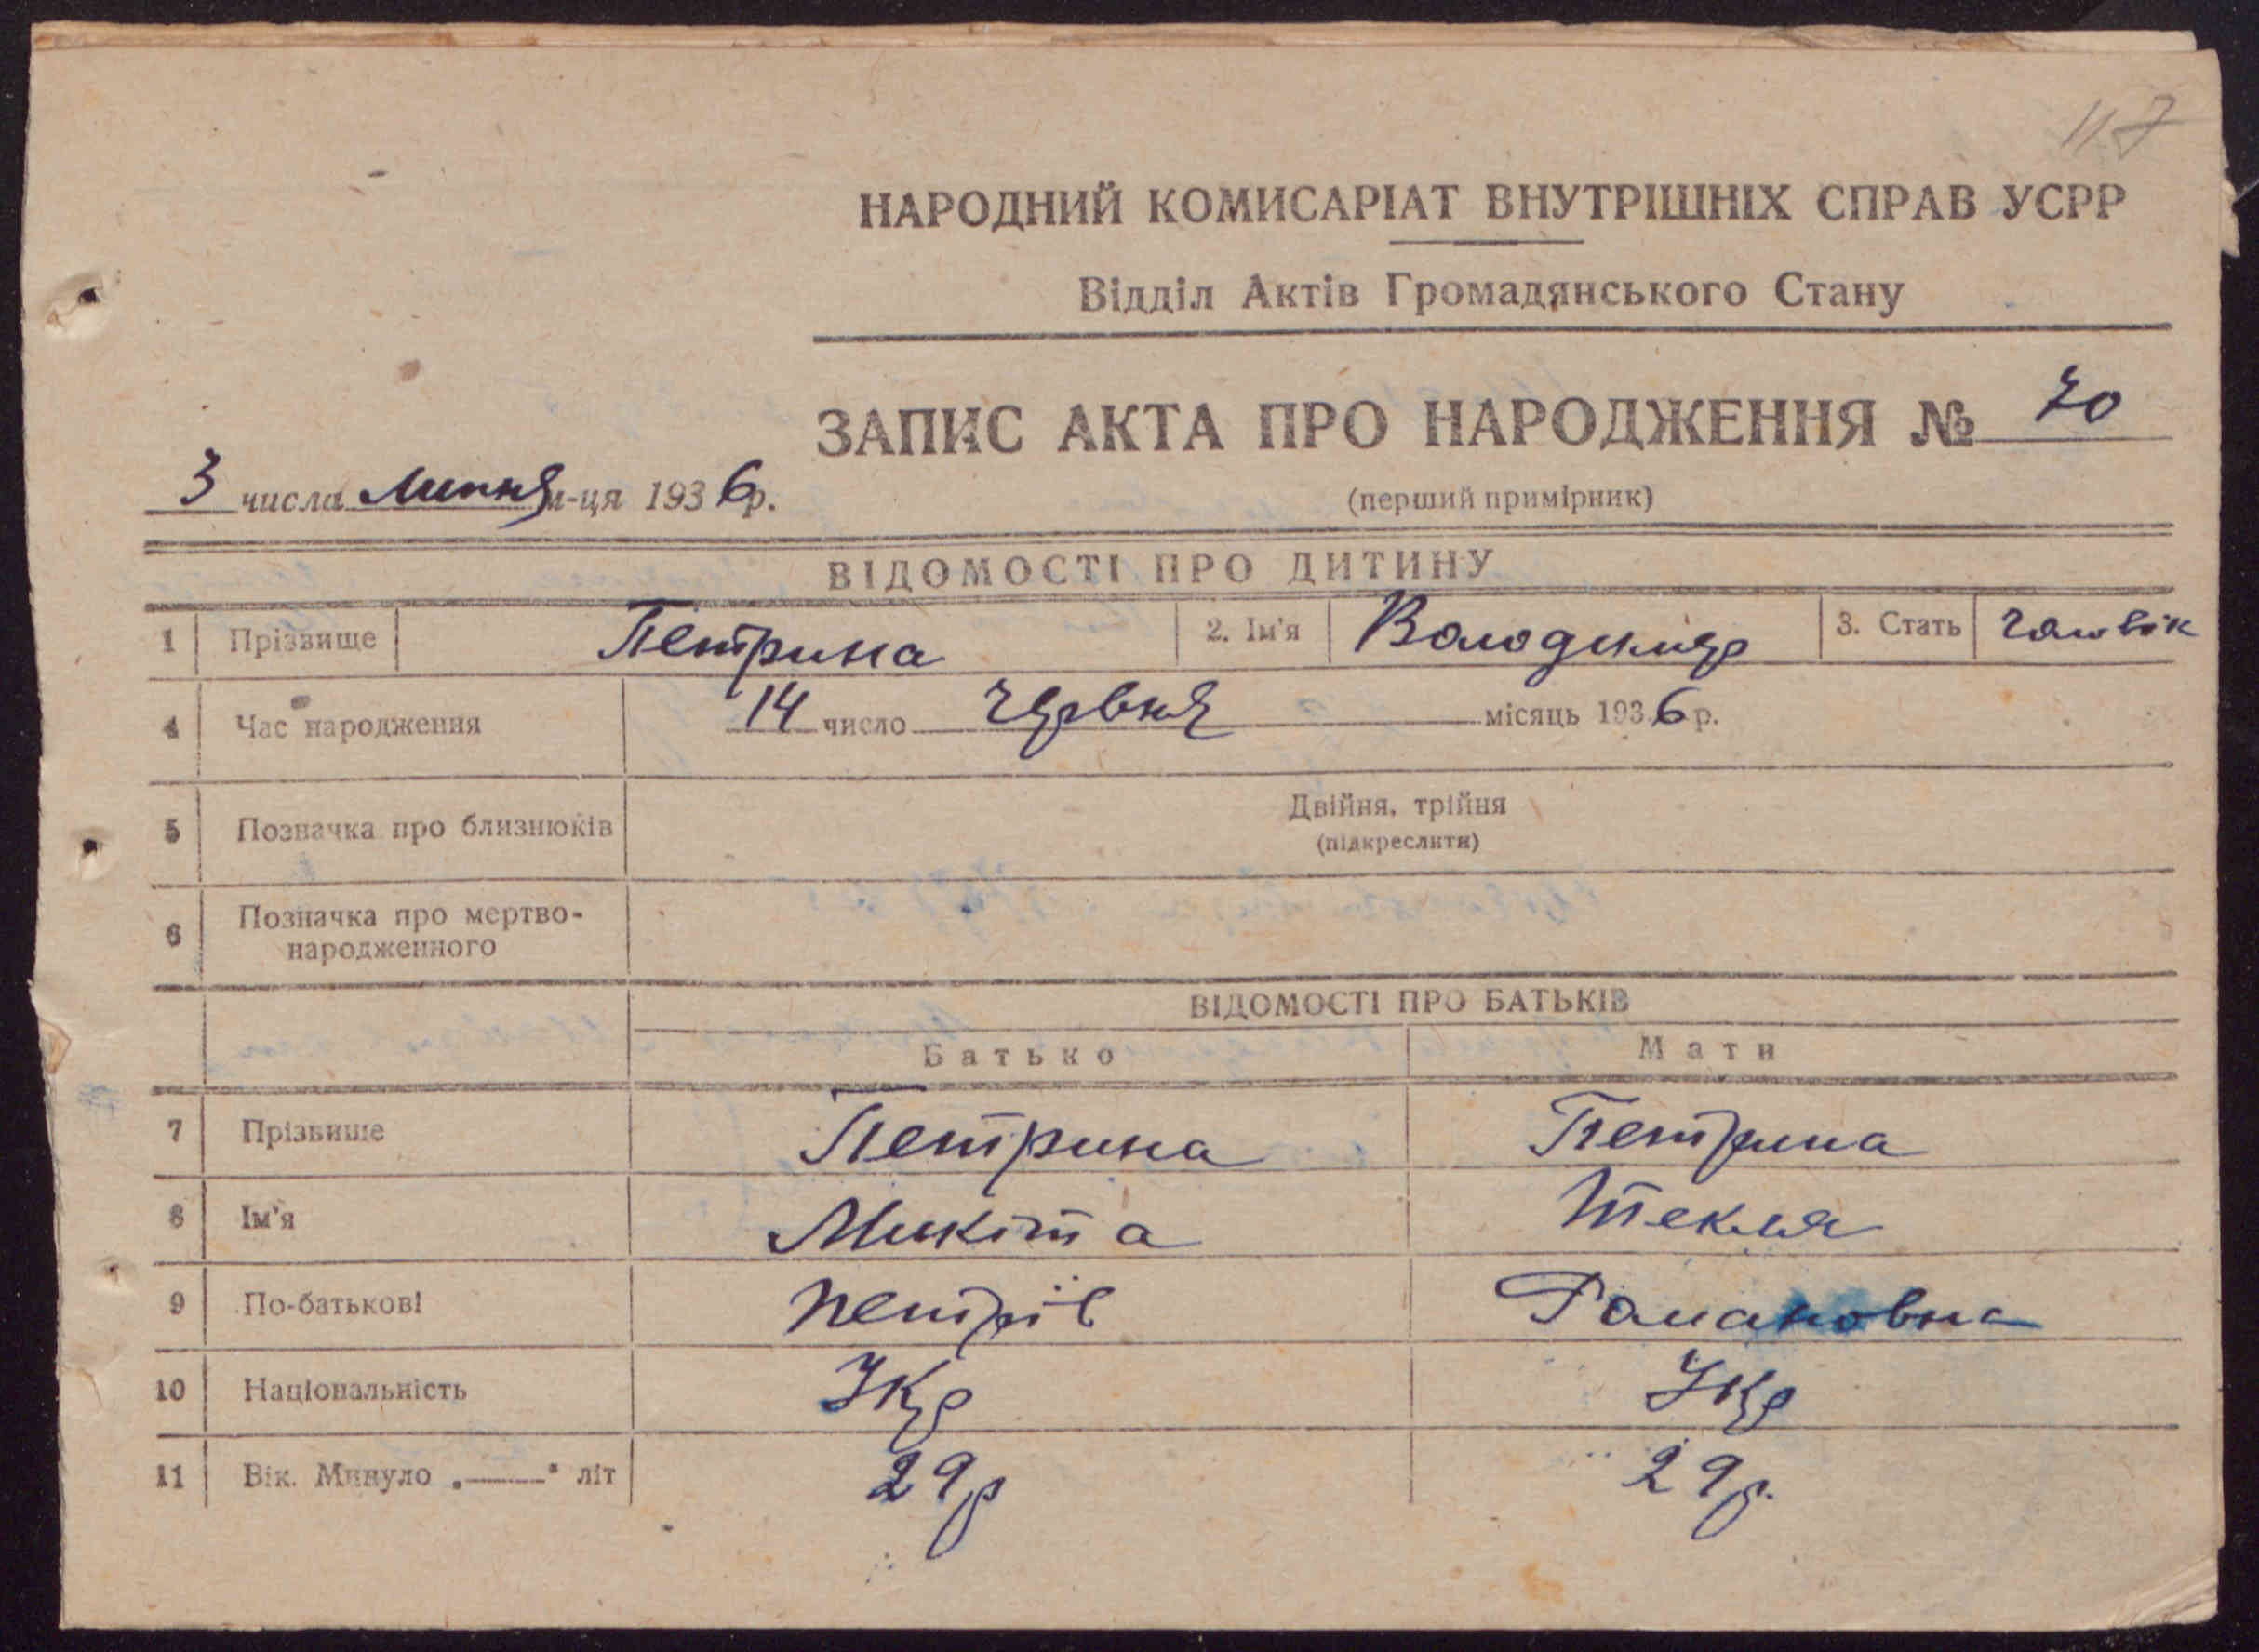 117
НАРОДНИЙ КОМИСАРІАТ ВНУТРІШНІХ СПРАВ УСРР
Відділ Актів Громадянського Стану
ЗАПИС АКТА ПРО НАРОДЖЕННЯ № 70
3 числа Липня м-ця 1936 р.
(перший примірник)
ВІДОМОСТІ ПРО ДИТИНУ
1 Прізвище Петрина 2. Ім'я Володимир 3. Стать чоловік
4 Час народження 14 число червня місяць 1936 р.
5 Позначка про близнюків Двійня, трійня
(підкреслити)
6 Позначка про мертво-
народженного
ВІДОМОСТІ ПРО БАТЬКІВ
Батько Мати
7 Прізвище Петрина Петрина
8 Ім'я Микіта Текля
9 По-батькові Петрів Романовна
10 Національність Укр Укр
11 Вік. Минуло „——" літ 29р 29р.